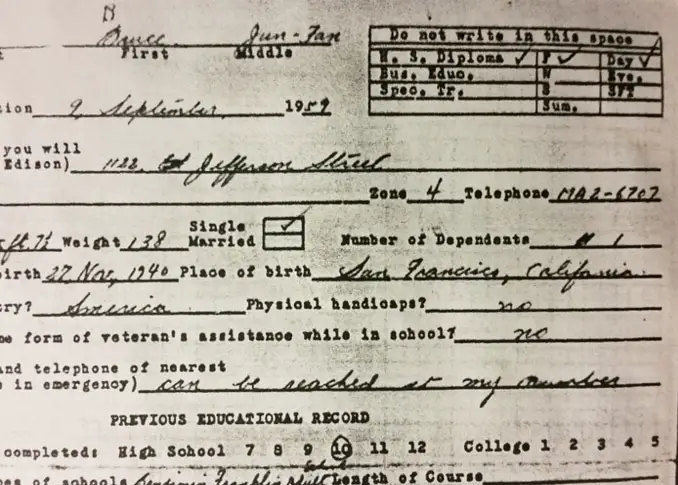 B
Bruce Jun-Fan
First Middle
Do not write in this space
H. S. Diploma ✓ F ✓ Day ✓
Bus. Educ. W Eve.
Spec. Tr. S SFT
Sum.
tion 9 September 1959
you will
Edison) 1122 Jefferson Street
Zone 4 Telephone MA2-6707
Single ✓
ft. 7½ Weight 138 Married Number of Dependents 1
irth 27 Nov, 1940 Place of birth San Francisco, California
try? America Physical handicaps? no
me form of veteran's assistance while in school? no
and telephone of nearest
e in emergency) can be reached at my number
PREVIOUS EDUCATIONAL RECORD
completed: High School 7 8 9 10 11 12 College 1 2 3 4 5
es of schools Benjamin Franklin Adult School Length of Course